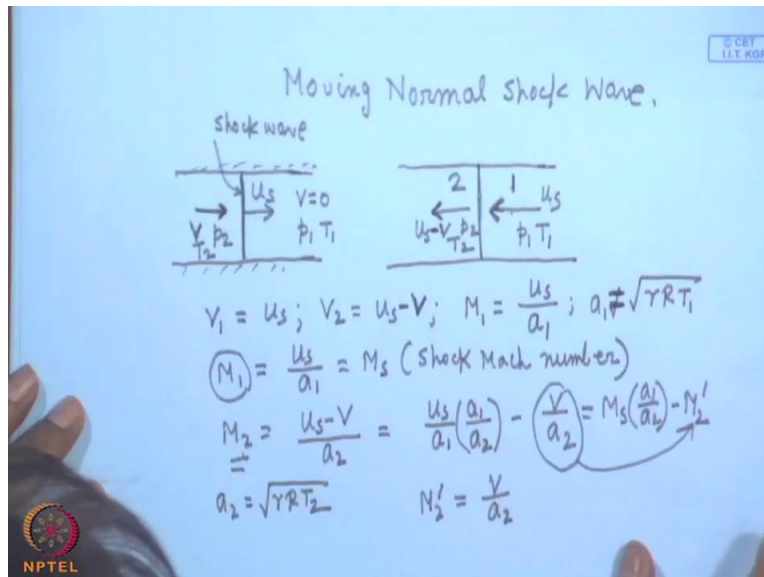 © CET
I.I.T. KGP
Moving Normal Shock Wave.
Shock wave
U_S V=0
V p_2 p_1 T_1
T_2
2 1 U_S
U_S-V p_2 p_1 T_1
T_2
V_1 = U_S ; V_2 = U_S-V ; M_1 = U_S/a_1 ; a_1 = √γRT_1
M_1 = U_S/a_1 = M_S (Shock Mach number)
M_2 = (U_S-V)/a_2 = U_S/a_1 (a_1/a_2) - V/a_2 = M_S(a_1/a_2) - M_2'
a_2 = √γRT_2 M_2' = V/a_2
NPTEL